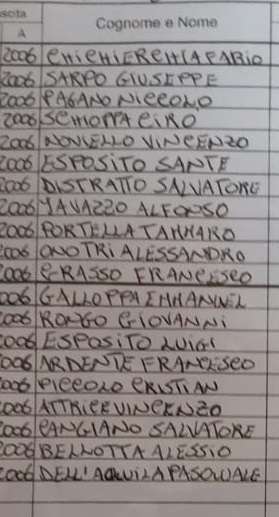 scita
A Cognome e Nome
2006 CHIEHIERCHIA FABIO
2006 SARPO GIUSEPPE
2006 PAGANO NICCOLO
2006 SCHIOPPA CIRO
2006 NOVIELLO VINCENZO
2006 ESPOSITO SANTE
2006 DISTRATTO SALVATORE
2006 IAVAZZO ALFONSO
2006 PORTELLA TAMMARO
2006 ONOTRI ALESSANDRO
2006 GRASSO FRANCESCO
006 GALLOPPA EMMANUEL
006 RONGO GIOVANNI
006 ESPOSITO LUIGI
006 ARDENTE FRANCESCO
006 PICCOLO CRISTIAN
2006 ATTRICE VINCENZO
2006 CANGIANO SALVATORE
2006 BELLOTTA ALESSIO
2006 DELL'AQUILA PASQUALE